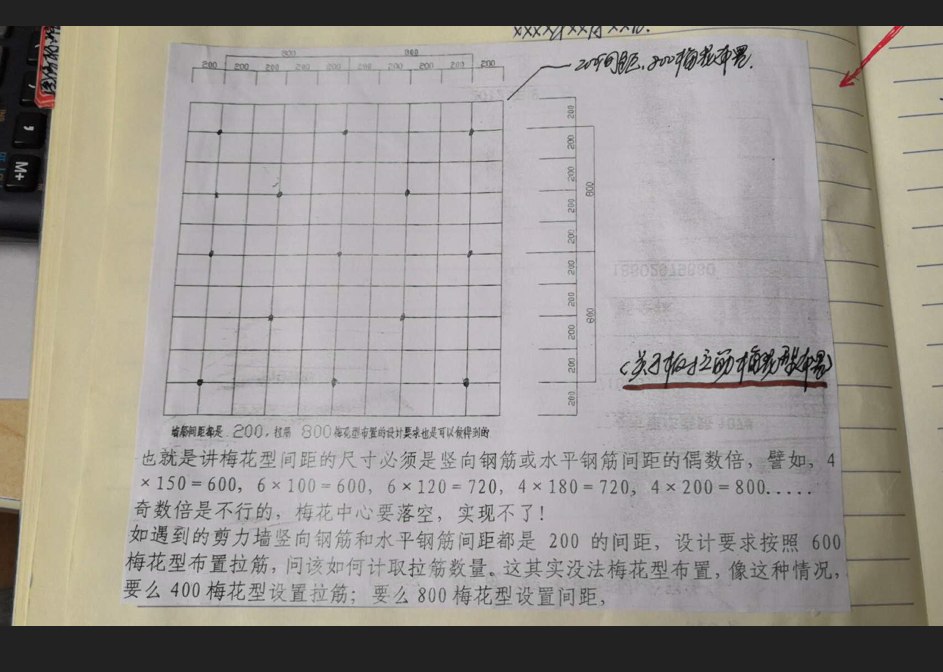 800 800
200 200 200 200 200 200 200 200 200
200间距、800梅花布置.
200
200
200
800
200
200
200
200
800
200
200
200
(关于板拉筋梅花型布置)
墙筋间距都是 200，拉筋 800 梅花型布置的设计要求也是可以做得到的
也就是讲梅花型间距的尺寸必须是竖向钢筋或水平钢筋间距的偶数倍，譬如，4
×150＝600，6×100＝600，6×120＝720，4×180＝720，4×200＝800.....
奇数倍是不行的，梅花中心要落空，实现不了！
如遇到的剪力墙竖向钢筋和水平钢筋间距都是 200 的间距，设计要求按照 600
梅花型布置拉筋，问该如何计取拉筋数量。这其实没法梅花型布置，像这种情况，
要么 400 梅花型设置拉筋；要么 800 梅花型设置间距，
M+